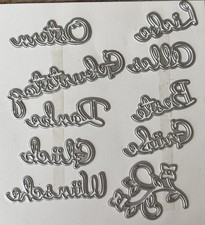 Ostern
Geburtstag
Danke
Glück
Wünsche
Liebe
Alles
Beste
Grüße